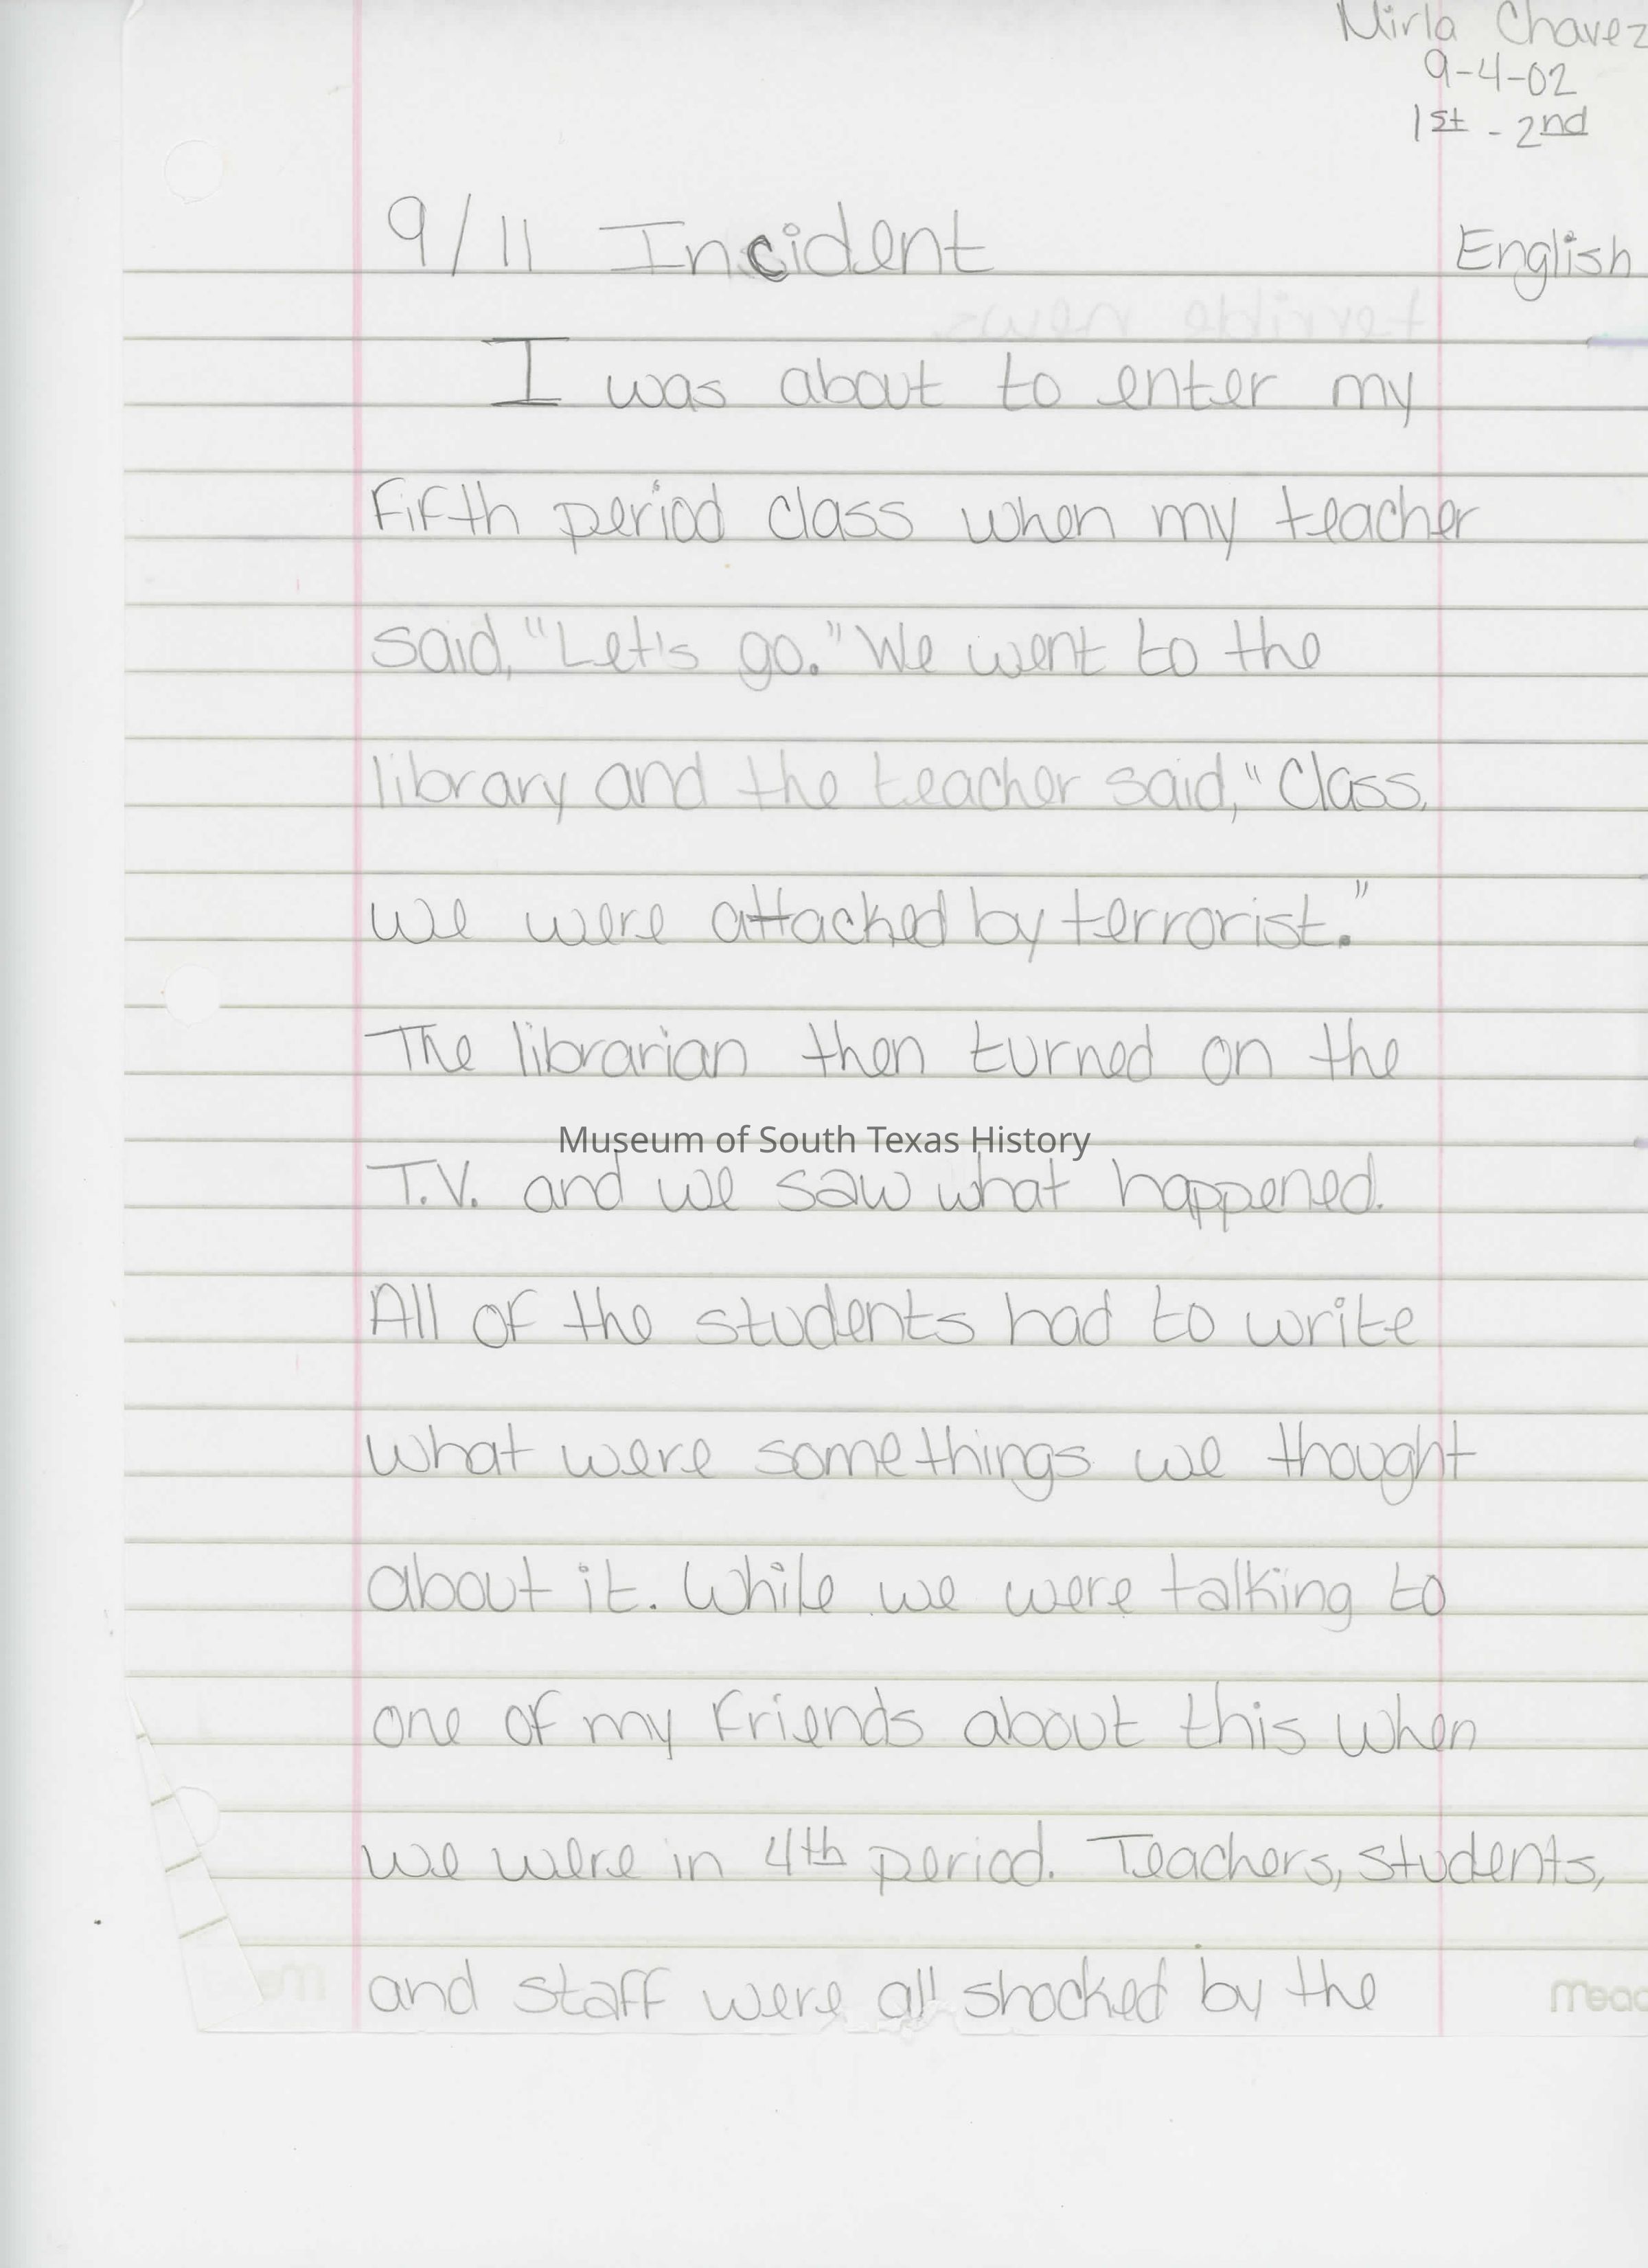 Mirla Chavez
9-4-02
1st - 2nd
9/11 Incident English
terrible news.
I was about to enter my
Fifth period class when my teacher
said, "Let's go." We went to the
library and the teacher said, "Class,
we were attacked by terrorist."
The librarian then turned on the
Museum of South Texas History
T.V. and we saw what happened.
All of the students had to write
what were somethings we thought
about it. While we were talking to
one of my Friends about this when
we were in 4th period. Teachers, students,
and staff were all shocked by the
Mead